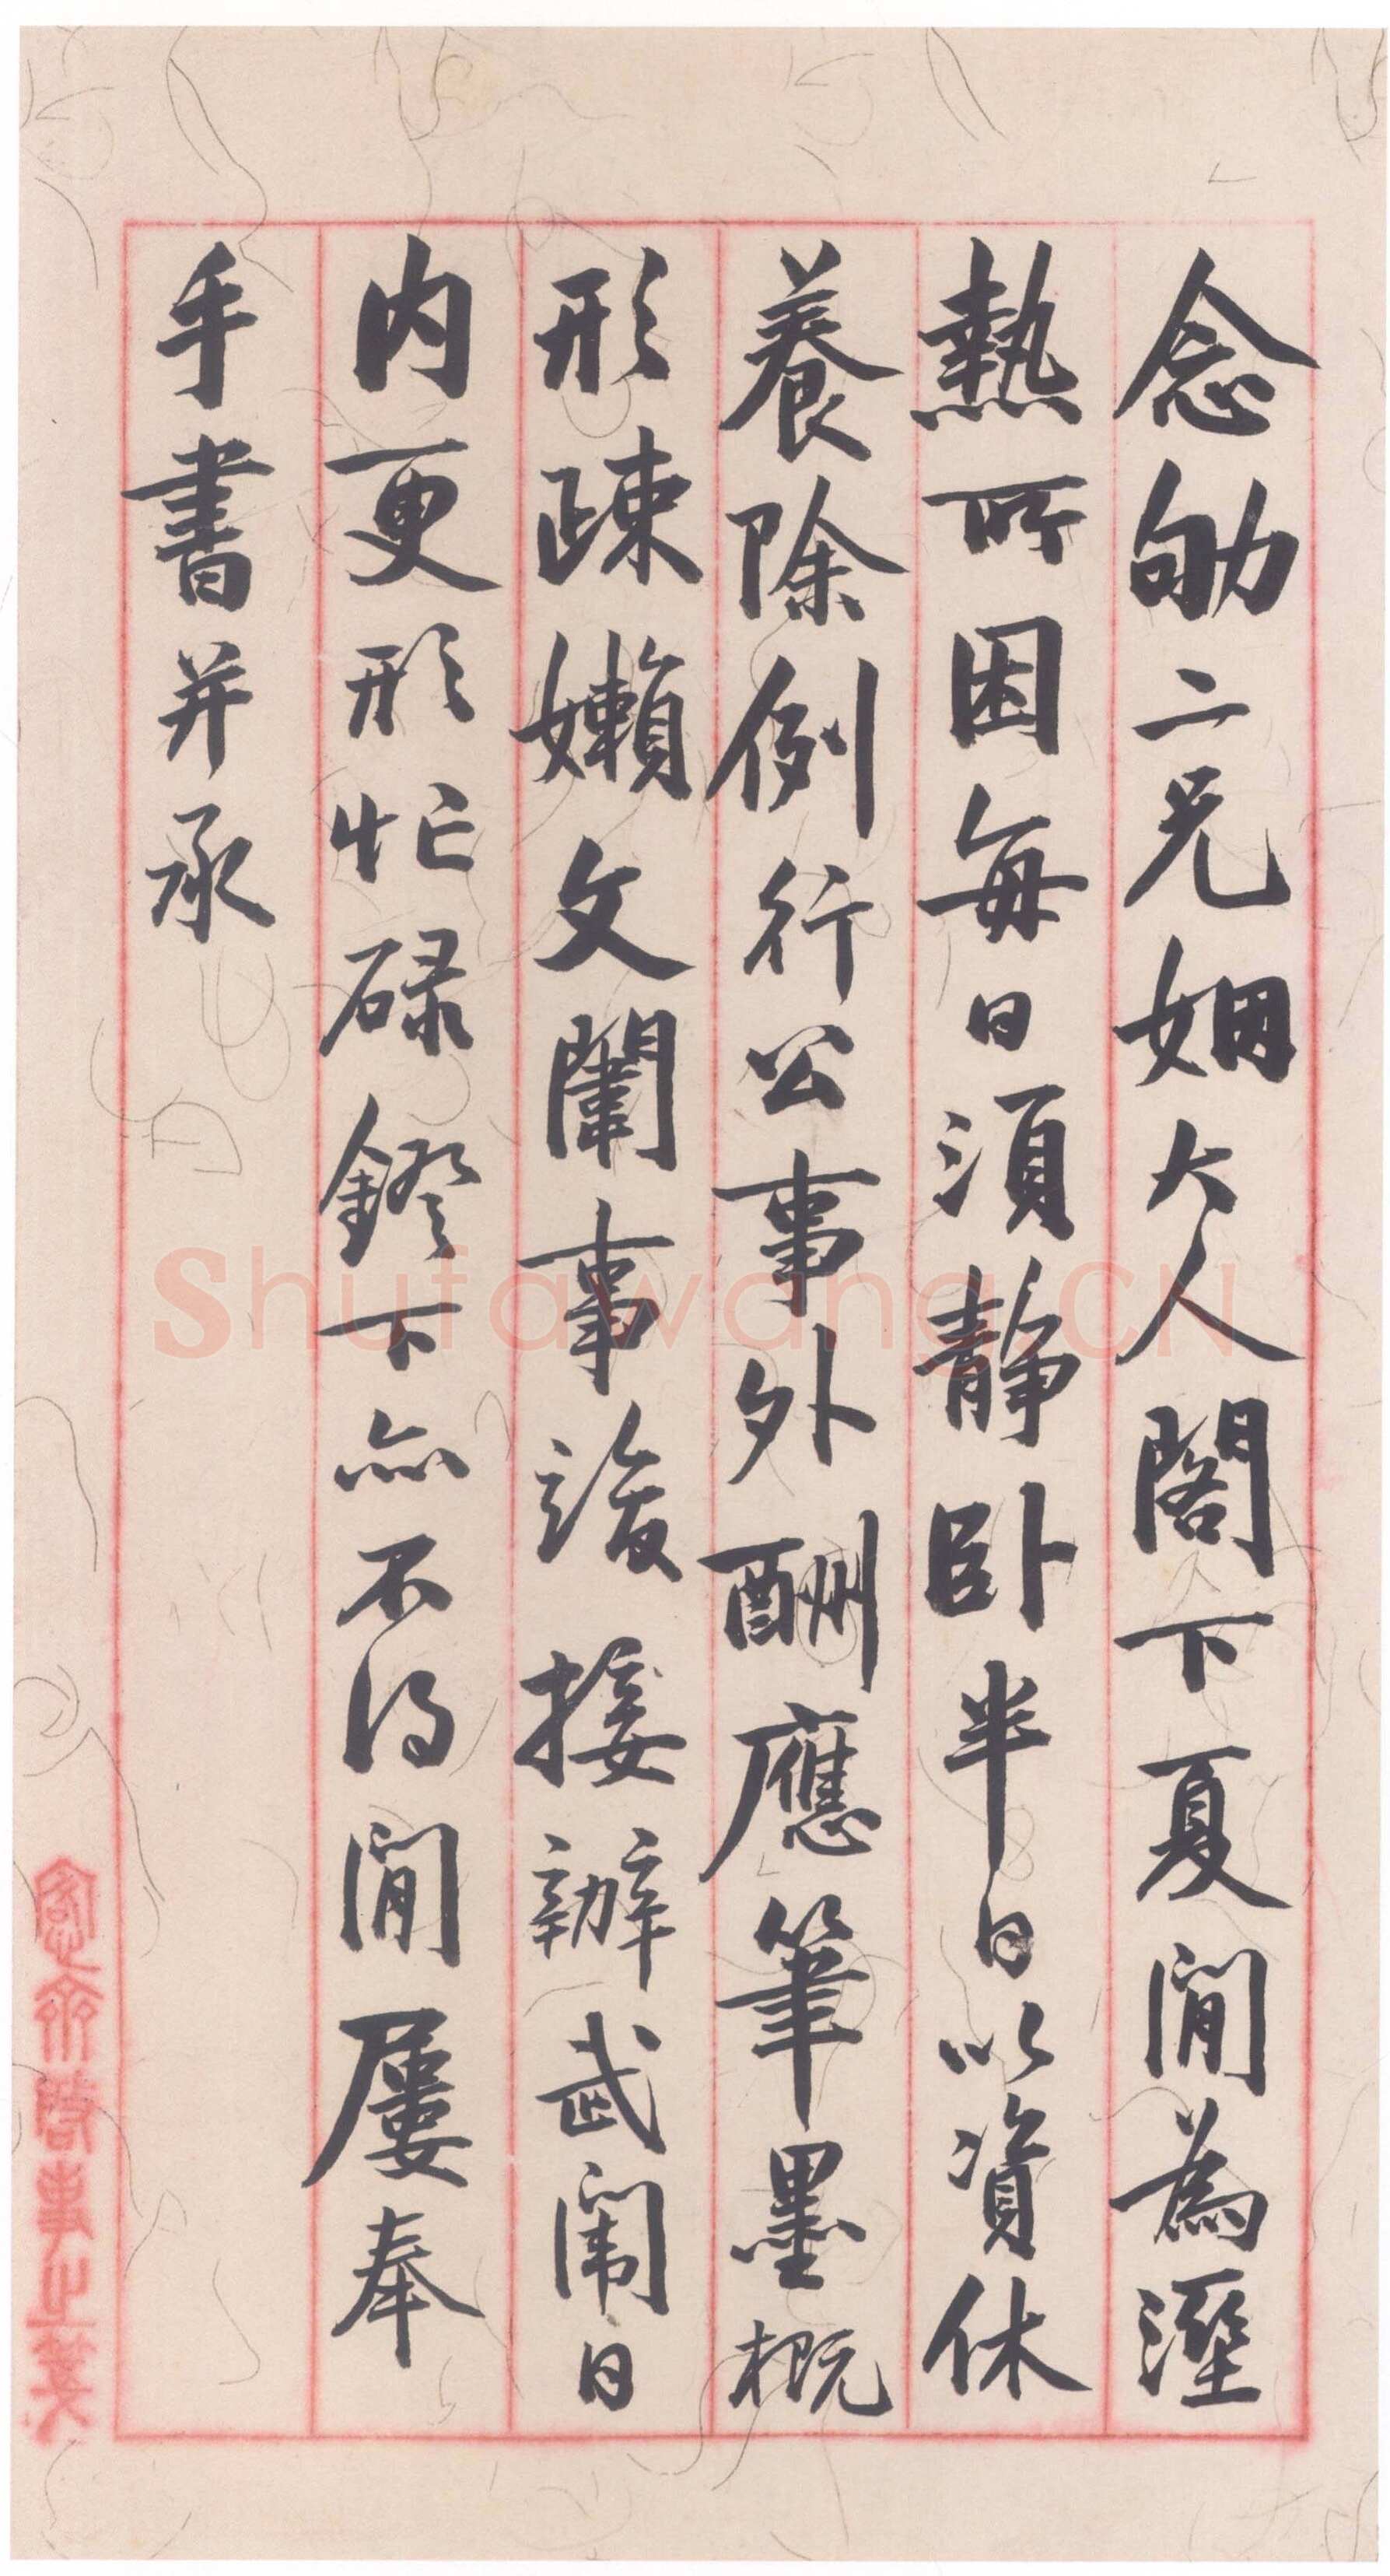 念劬二兄姻大人閣下夏間為溼
熱所困每日須靜臥半日以資休
養除例行公事外酬應筆墨概
形疎嬾文闈事竣接辦武闈日
内更形忙碌鐙下亦不得閒屢奉
手書并承
Shufawang.CN